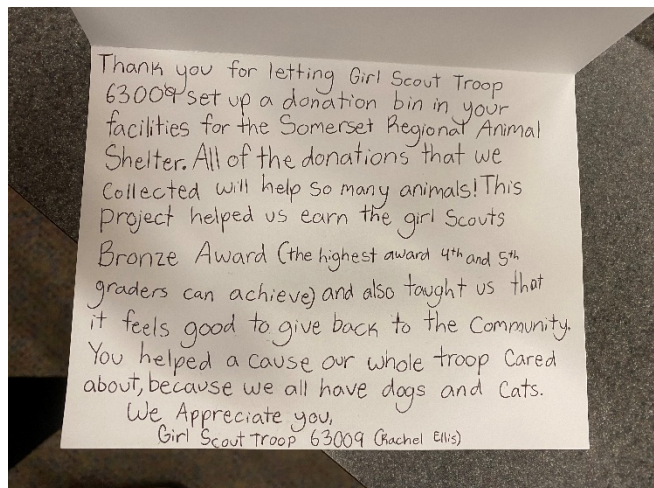 Thank you for letting Girl Scout Troop
63009 set up a donation bin in your
facilities for the Somerset Regional Animal
Shelter. All of the donations that we
Collected will help so many animals! This
project helped us earn the girl Scouts
Bronze Award (the highest award 4th and 5th
graders can achieve) and also taught us that
it feels good to give back to the Community.
You helped a cause our whole troop Cared
about, because we all have dogs and Cats.
We Appreciate you,
Girl Scout Troop 63009 (Rachel Ellis)